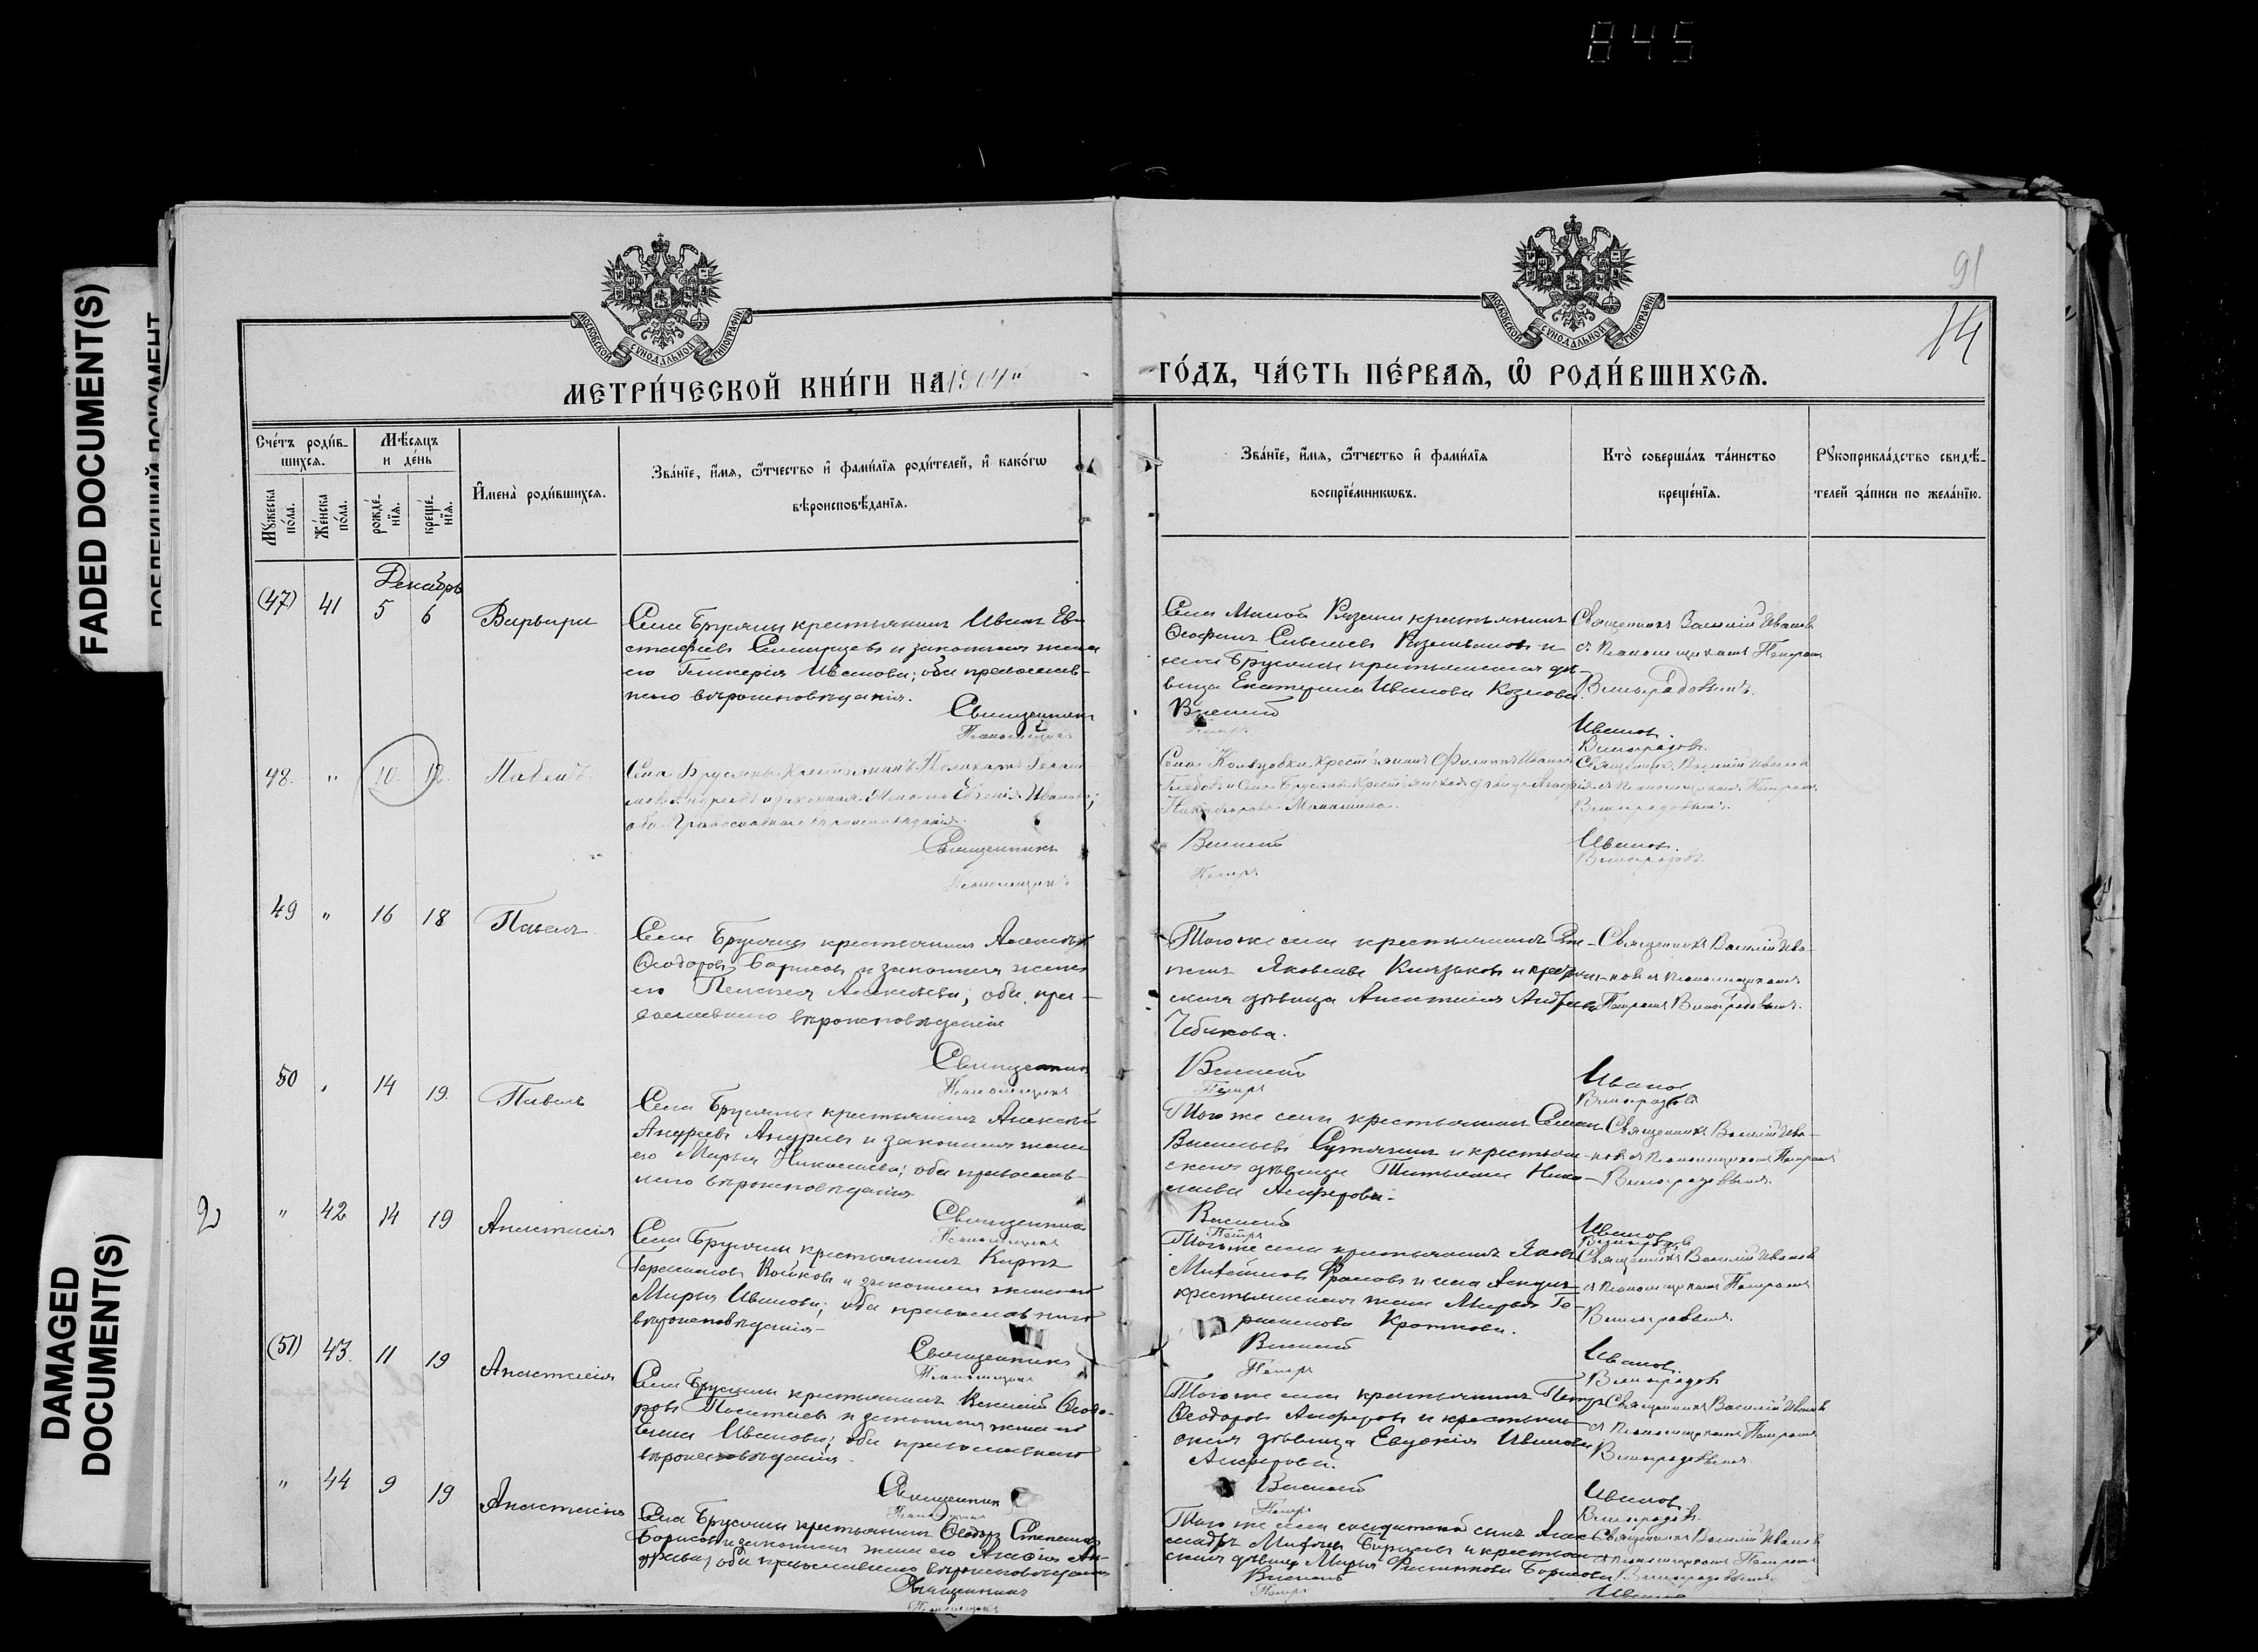 845
FADED DOCUMENT(S)
DAMAGED
DOCUMENT(S)
91
14
МОСКОВСКОЙ СѴНОДАЛЬНОЙ ТИПОГРАФІИ
МОСКОВСКОЙ СѴНОДАЛЬНОЙ ТИПОГРАФІИ
МЕТРИ́ЧЕСКОЙ КНИ́ГИ НА 1904"
ГО́ДЪ, ЧА́СТЬ ПЕ́РВАѦ, Ѿ РОДИ́ВШИХСѦ.
Сче́тъ роди́в-
шихсѧ.
Мꙋ́жеска
по́ла.
Же́нска
по́ла.
Мѣ́сѧцъ
и де́нь
рожде́-
нїѧ.
креще́-
нїѧ.
И҆мена̀ роди́вшихсѧ.
Зва́нїе, и҆́мѧ, ѻ҆́тчество и҆ фами́лїѧ роди́телей, и҆ како́гѡ
вѣроисповѣ́данїѧ.
Зва́нїе, и҆́мѧ, ѻ҆́тчество и҆ фами́лїѧ
воспрїе́мникѡвъ.
Кто̀ соверша́лъ та́инство
креще́нїѧ.
Рꙋкоприкла́дство свидѣ́-
телей за́писи по жела́нїю.
Декабрь
(47) 41 5 6 Варвара
Села Брусяны крестьянинъ Иванъ Ев-
стафіевъ и законная жена
его Гликерія Иванова; оба православ-
наго вѣроисповѣданія.
Священникъ
Псаломщикъ
Села Малой Рязани крестьянинъ
Ѳеофанъ Савельевъ и
села Брусяны крестьянская дѣ-
вица Екатерина Иванова Козлова.
Василій
Петръ
Священникъ Василій Ивановъ
съ псаломщикомъ Петромъ
Виноградовымъ.
Ивановъ.
Виноградовъ.
48. " 10. 12. Павелъ
Села Брусяны крестьянинъ
Андреевъ и законная жена его Евгенія Иванова;
оба православнаго вѣроисповѣданія.
Священникъ
Псаломщикъ
Села Кольцовки крестьянинъ Филиппъ Ивановъ
Глебовъ и села Брусяны крестьянская дѣвица
Никифорова
Василій
Петръ
Священникъ Василій Ивановъ
съ псаломщикомъ Петромъ
Виноградовымъ.
Ивановъ.
Виноградовъ.
49 " 16 18 Павелъ
Села Брусяны крестьянинъ Алексѣй
Ѳеодоровъ Борисовъ и законная жена
его Пелагея Алексѣева; оба пра-
вославнаго вѣроисповѣданія
Священникъ
Псаломщикъ
Того же села крестьянинъ
Яковлевъ Князьковъ и крестьян-
ская дѣвица Анастасія Андреева
Чебикова.
Василій
Петръ
Священникъ Василій Ива-
новъ съ псаломщикомъ
Петромъ Виноградовымъ.
Ивановъ
Виноградовъ
50 " 14 19. Павелъ
Села Брусяны крестьянинъ Алексѣй
Андреевъ Андреевъ и законная жена
его Марья Николаева; оба православ-
наго вѣроисповѣданія
Священникъ
Псаломщикъ
Того же села крестьянинъ Семенъ
Васильевъ Сутягинъ и крестьян-
ская дѣвица Татьяна Нико-
лаева Алферова.
Василій
Петръ
Священникъ Василій Ива-
новъ съ псаломщикомъ Петромъ
Виноградовымъ.
Ивановъ
Виноградовъ
2
" 42 14 19 Анастасія
Села Брусяны крестьянинъ Карпъ
Герасимовъ Войковъ и законная жена его
Марья Иванова; оба православнаго
вѣроисповѣданія
Священникъ
Псаломщикъ
Того же села крестьянинъ Яковъ
Михайловъ Фроловъ и села
крестьянская жена Марья Ге-
расимова Кроткова.
Василій
Петръ
Священникъ Василій Ивановъ
съ псаломщикомъ Петромъ
Виноградовымъ.
Ивановъ.
Виноградовъ
(51) 43. 11 19 Анастасія
Села Брусяны крестьянинъ Василій Ѳеодо-
ровъ и законная жена его
Елена Иванова; оба православнаго
вѣроисповѣданія.
Священникъ
Псаломщикъ
Того же села крестьянинъ Петръ
Ѳеодоровъ Алферовъ и крестьян-
ская дѣвица Евдокія Иванова
Алферова.
Василій
Петръ
Священникъ Василій Ивановъ
съ псаломщикомъ Петромъ
Виноградовымъ.
Ивановъ.
Виноградовъ.
" 44 9 19 Анастасія
Села Брусяны крестьянинъ Ѳеодоръ Степановъ
Борисовъ и законная жена его Анѳія Ан-
дреева; оба православнаго вѣроисповѣданія
Священникъ
Псаломщикъ
Того же села солдатской сынъ Алек-
сандръ Борисовъ и крестьян-
ская дѣвица Марья Филиппова Борисова
Василій
Петръ
Священникъ Василій Ивановъ
съ псаломщикомъ Петромъ
Виноградовымъ.
Ивановъ